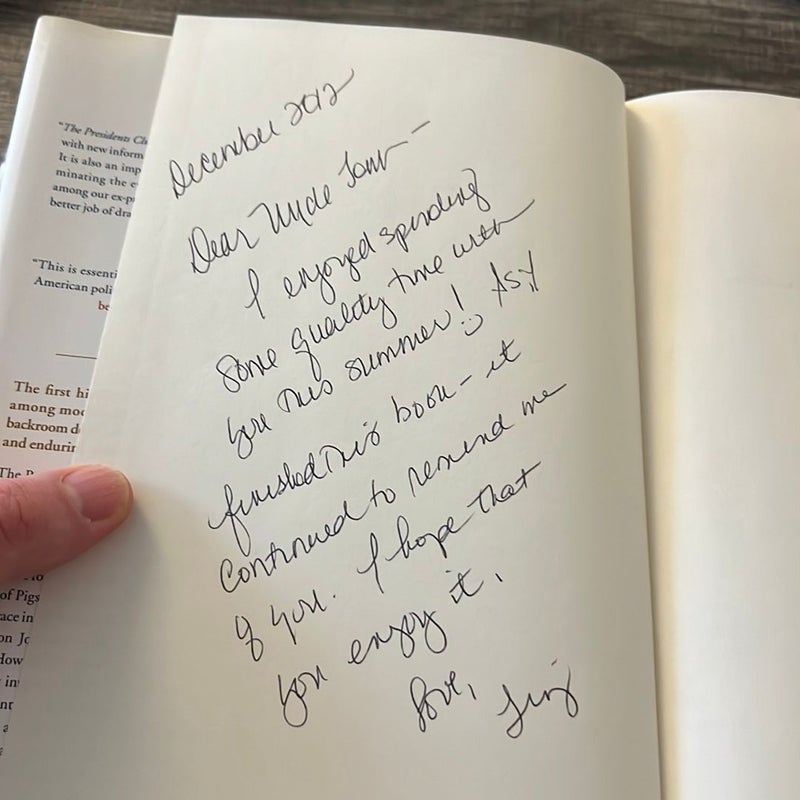 "The Presidents Cl
with new inform
It is also an imp
minating the e
among our ex-p
better job of dra
"This is essenti
American poli
be
The first hi
among mo
backroom d
and endurin
The P
of Pigs
ace in
on Jo
How
in
nt
a
December 2012
Dear Uncle Tom –
I enjoyed spending
some quality time with
you this summer! As I
finished this book – it
continued to remind me
of you. I hope that
you enjoy it.
Love,